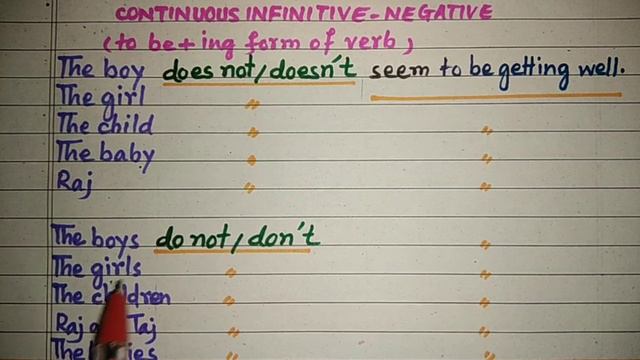 CONTINUOUS INFINITIVE-NEGATIVE
(to be + ing form of verb)
The boy does not/doesn't seem to be getting well.
The girl " "
The child " "
The baby " "
Raj " "
The boys do not/don't "
The girls " "
The children " "
Raj Taj " "
The " "